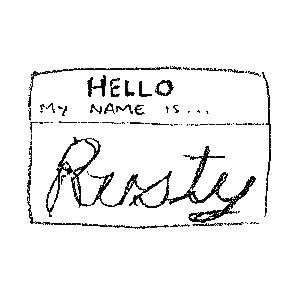 HELLO
My NAME is...
Rusty